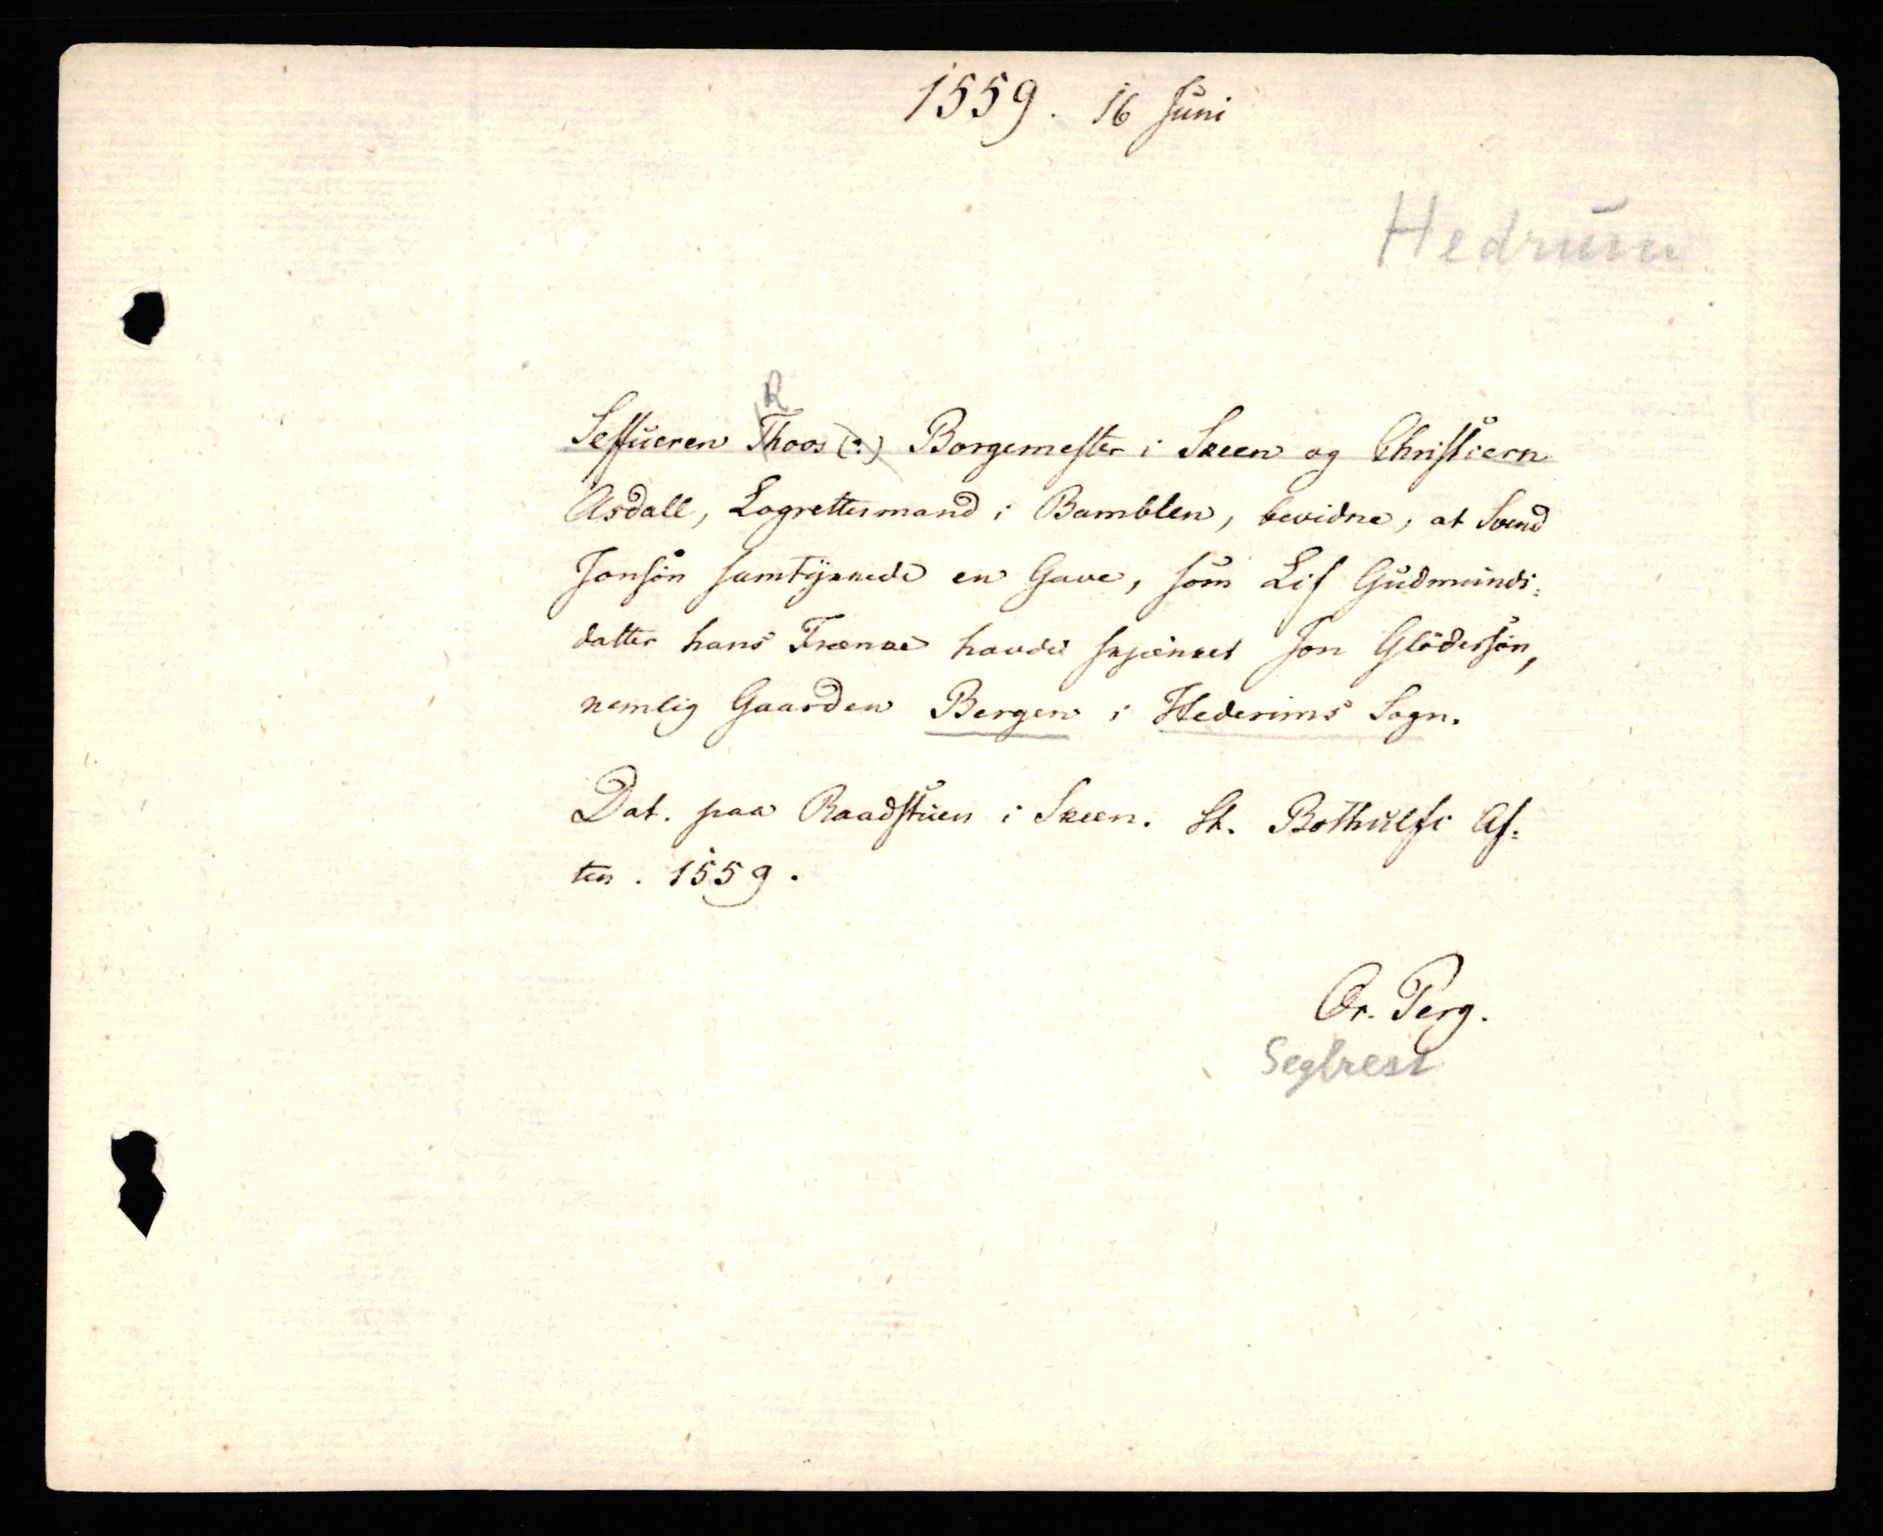 1559. 16 Juni
Hedrum
R
Seffueren Thoos (?) Borgemester i Skeen og Christiern
Asdall, Lagrettesmand i Bamblen, bevidne, at Svend
Jonsøn samtykkede en Gave, som Lif Gudmunds-
datter hans Frænke havde skjænket Jon Glödersøn,
nemlig Gaarden Bergen i Hederims Sogn.
Dat. paa Raadstuen i Skeen. St. Bothulfs Af-
ten. 1559.
Or. Perg.
Seglrest